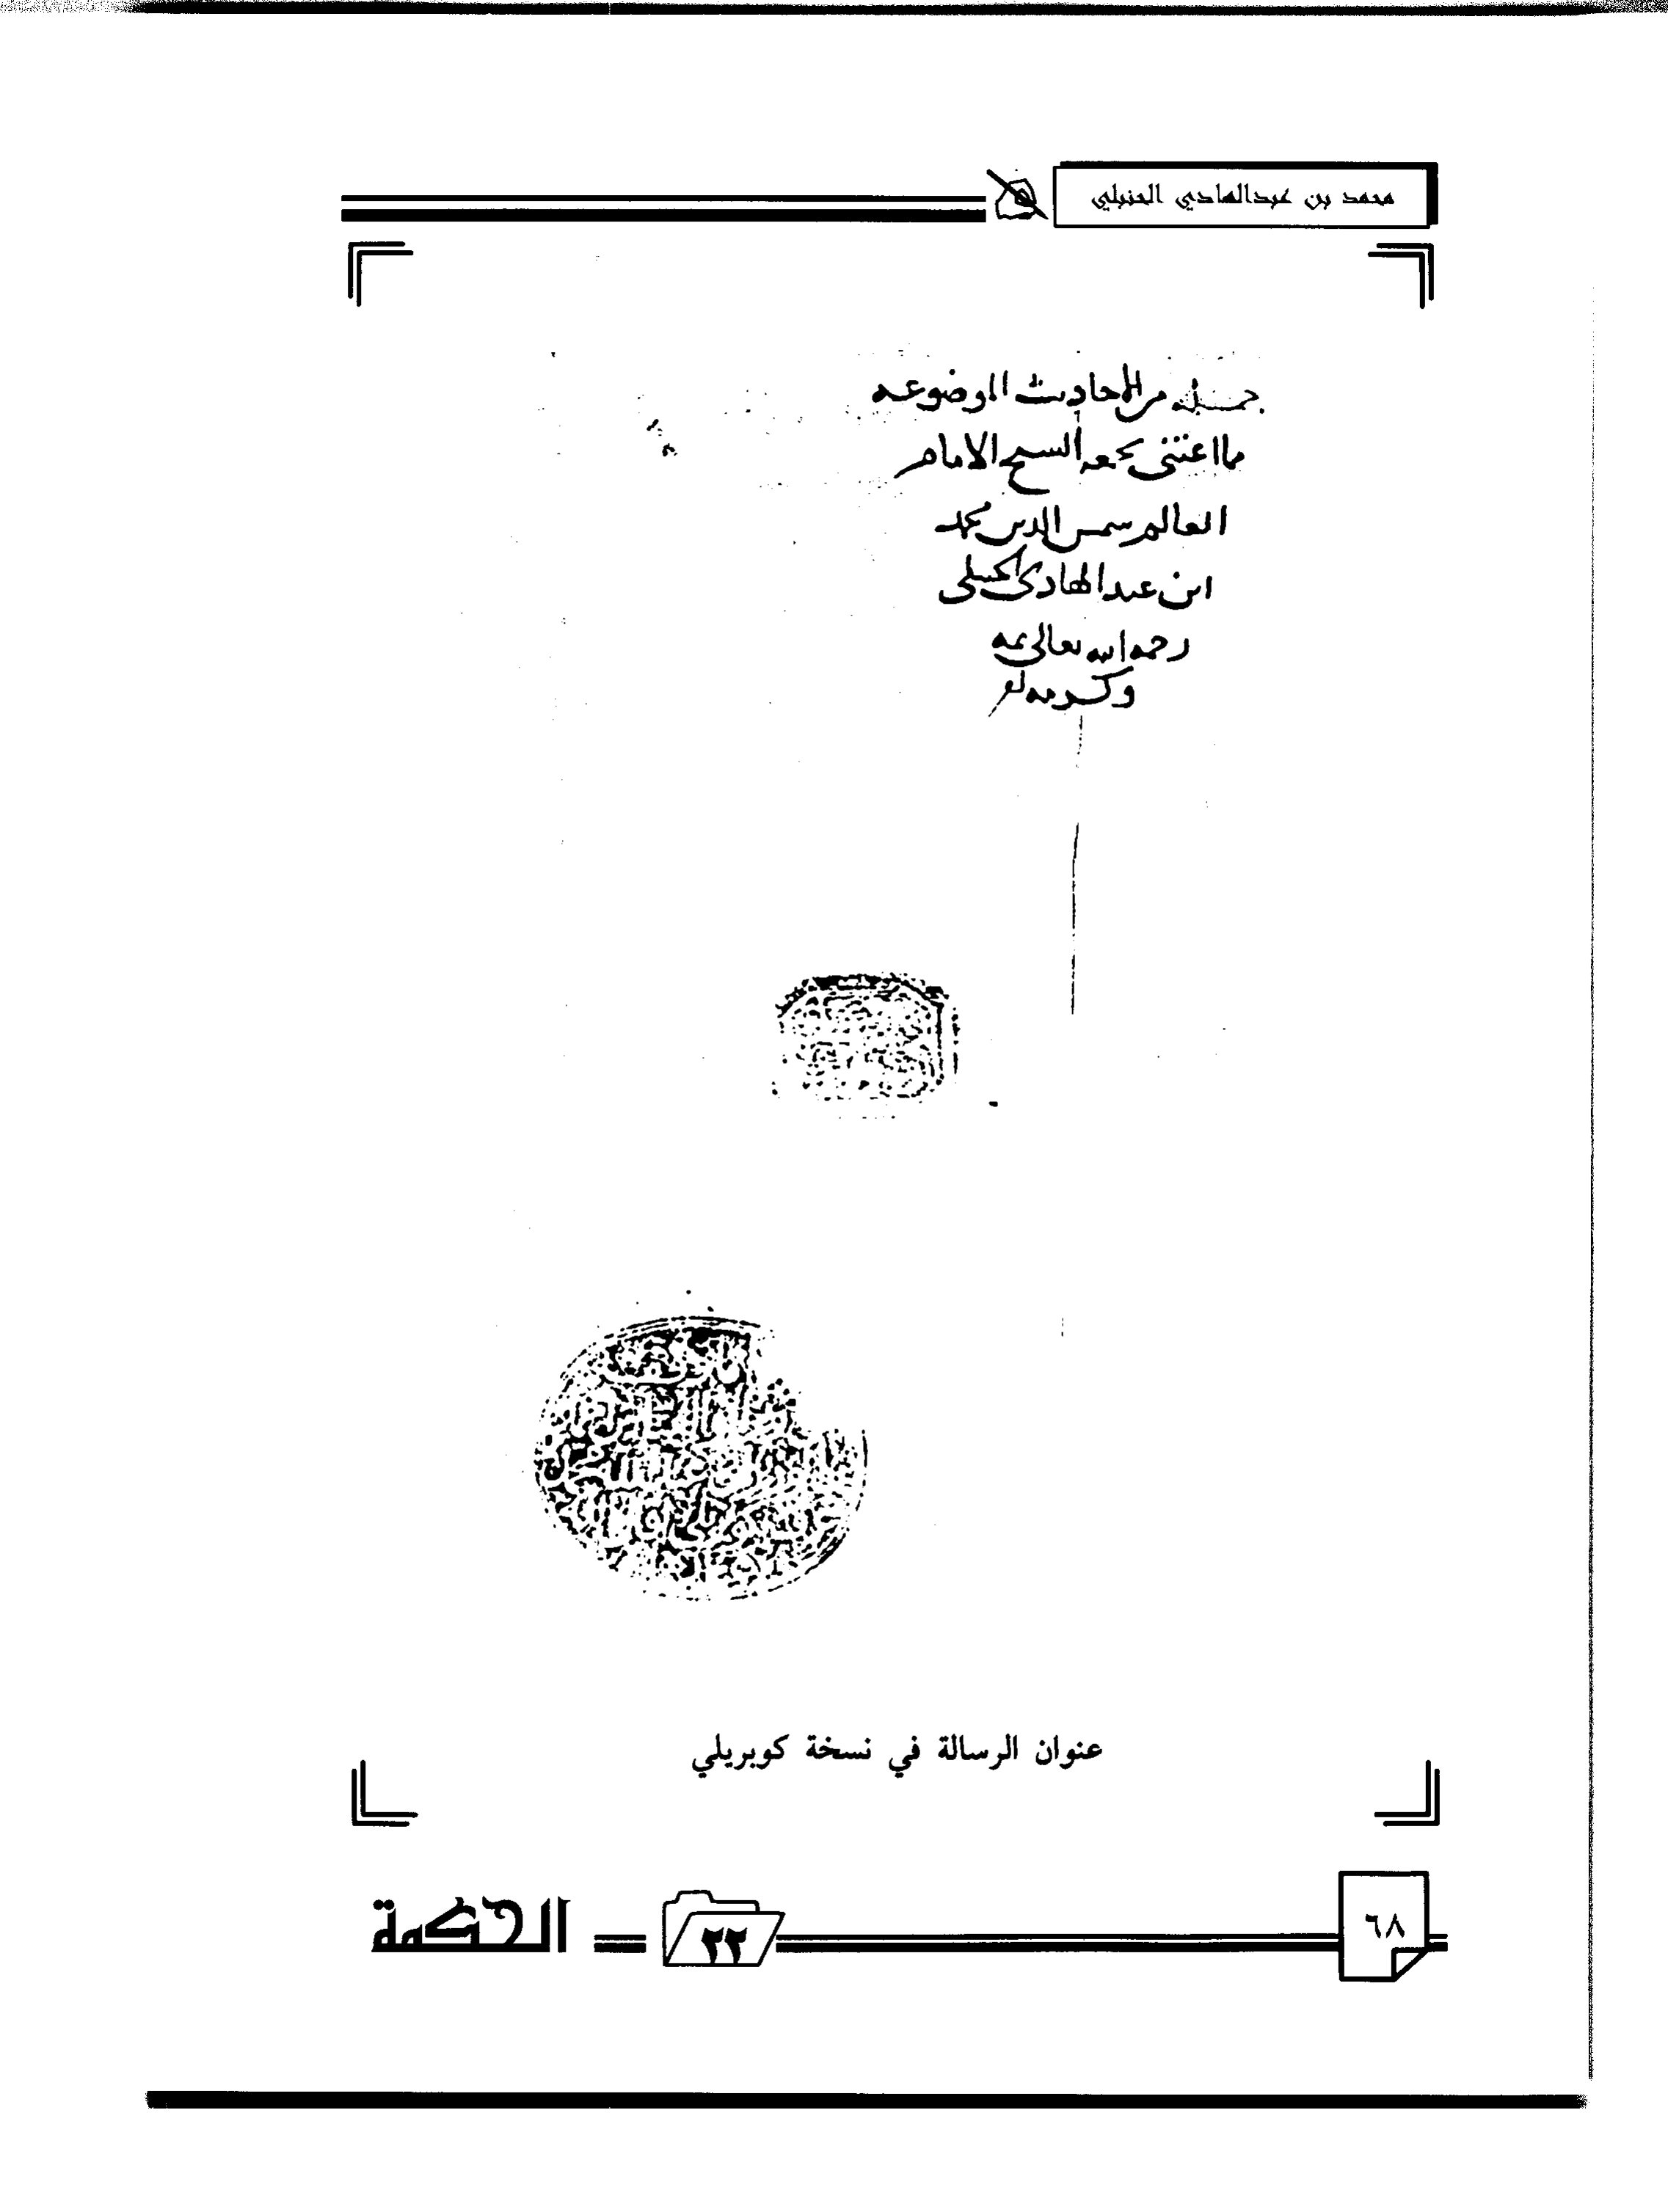 محمد بن عبدالهادي الحنبلي
جمله من الاحاديث الموضوعه
مما اعتنى بجمعه الشيخ الامام
العالم شمس الدين محمد
ابن عبد الهادى الحنبلى
رحمه الله تعالى بمنه
وكرمه
عنوان الرسالة في نسخة كوبريلي
٦٨
٢٢
الحكمة